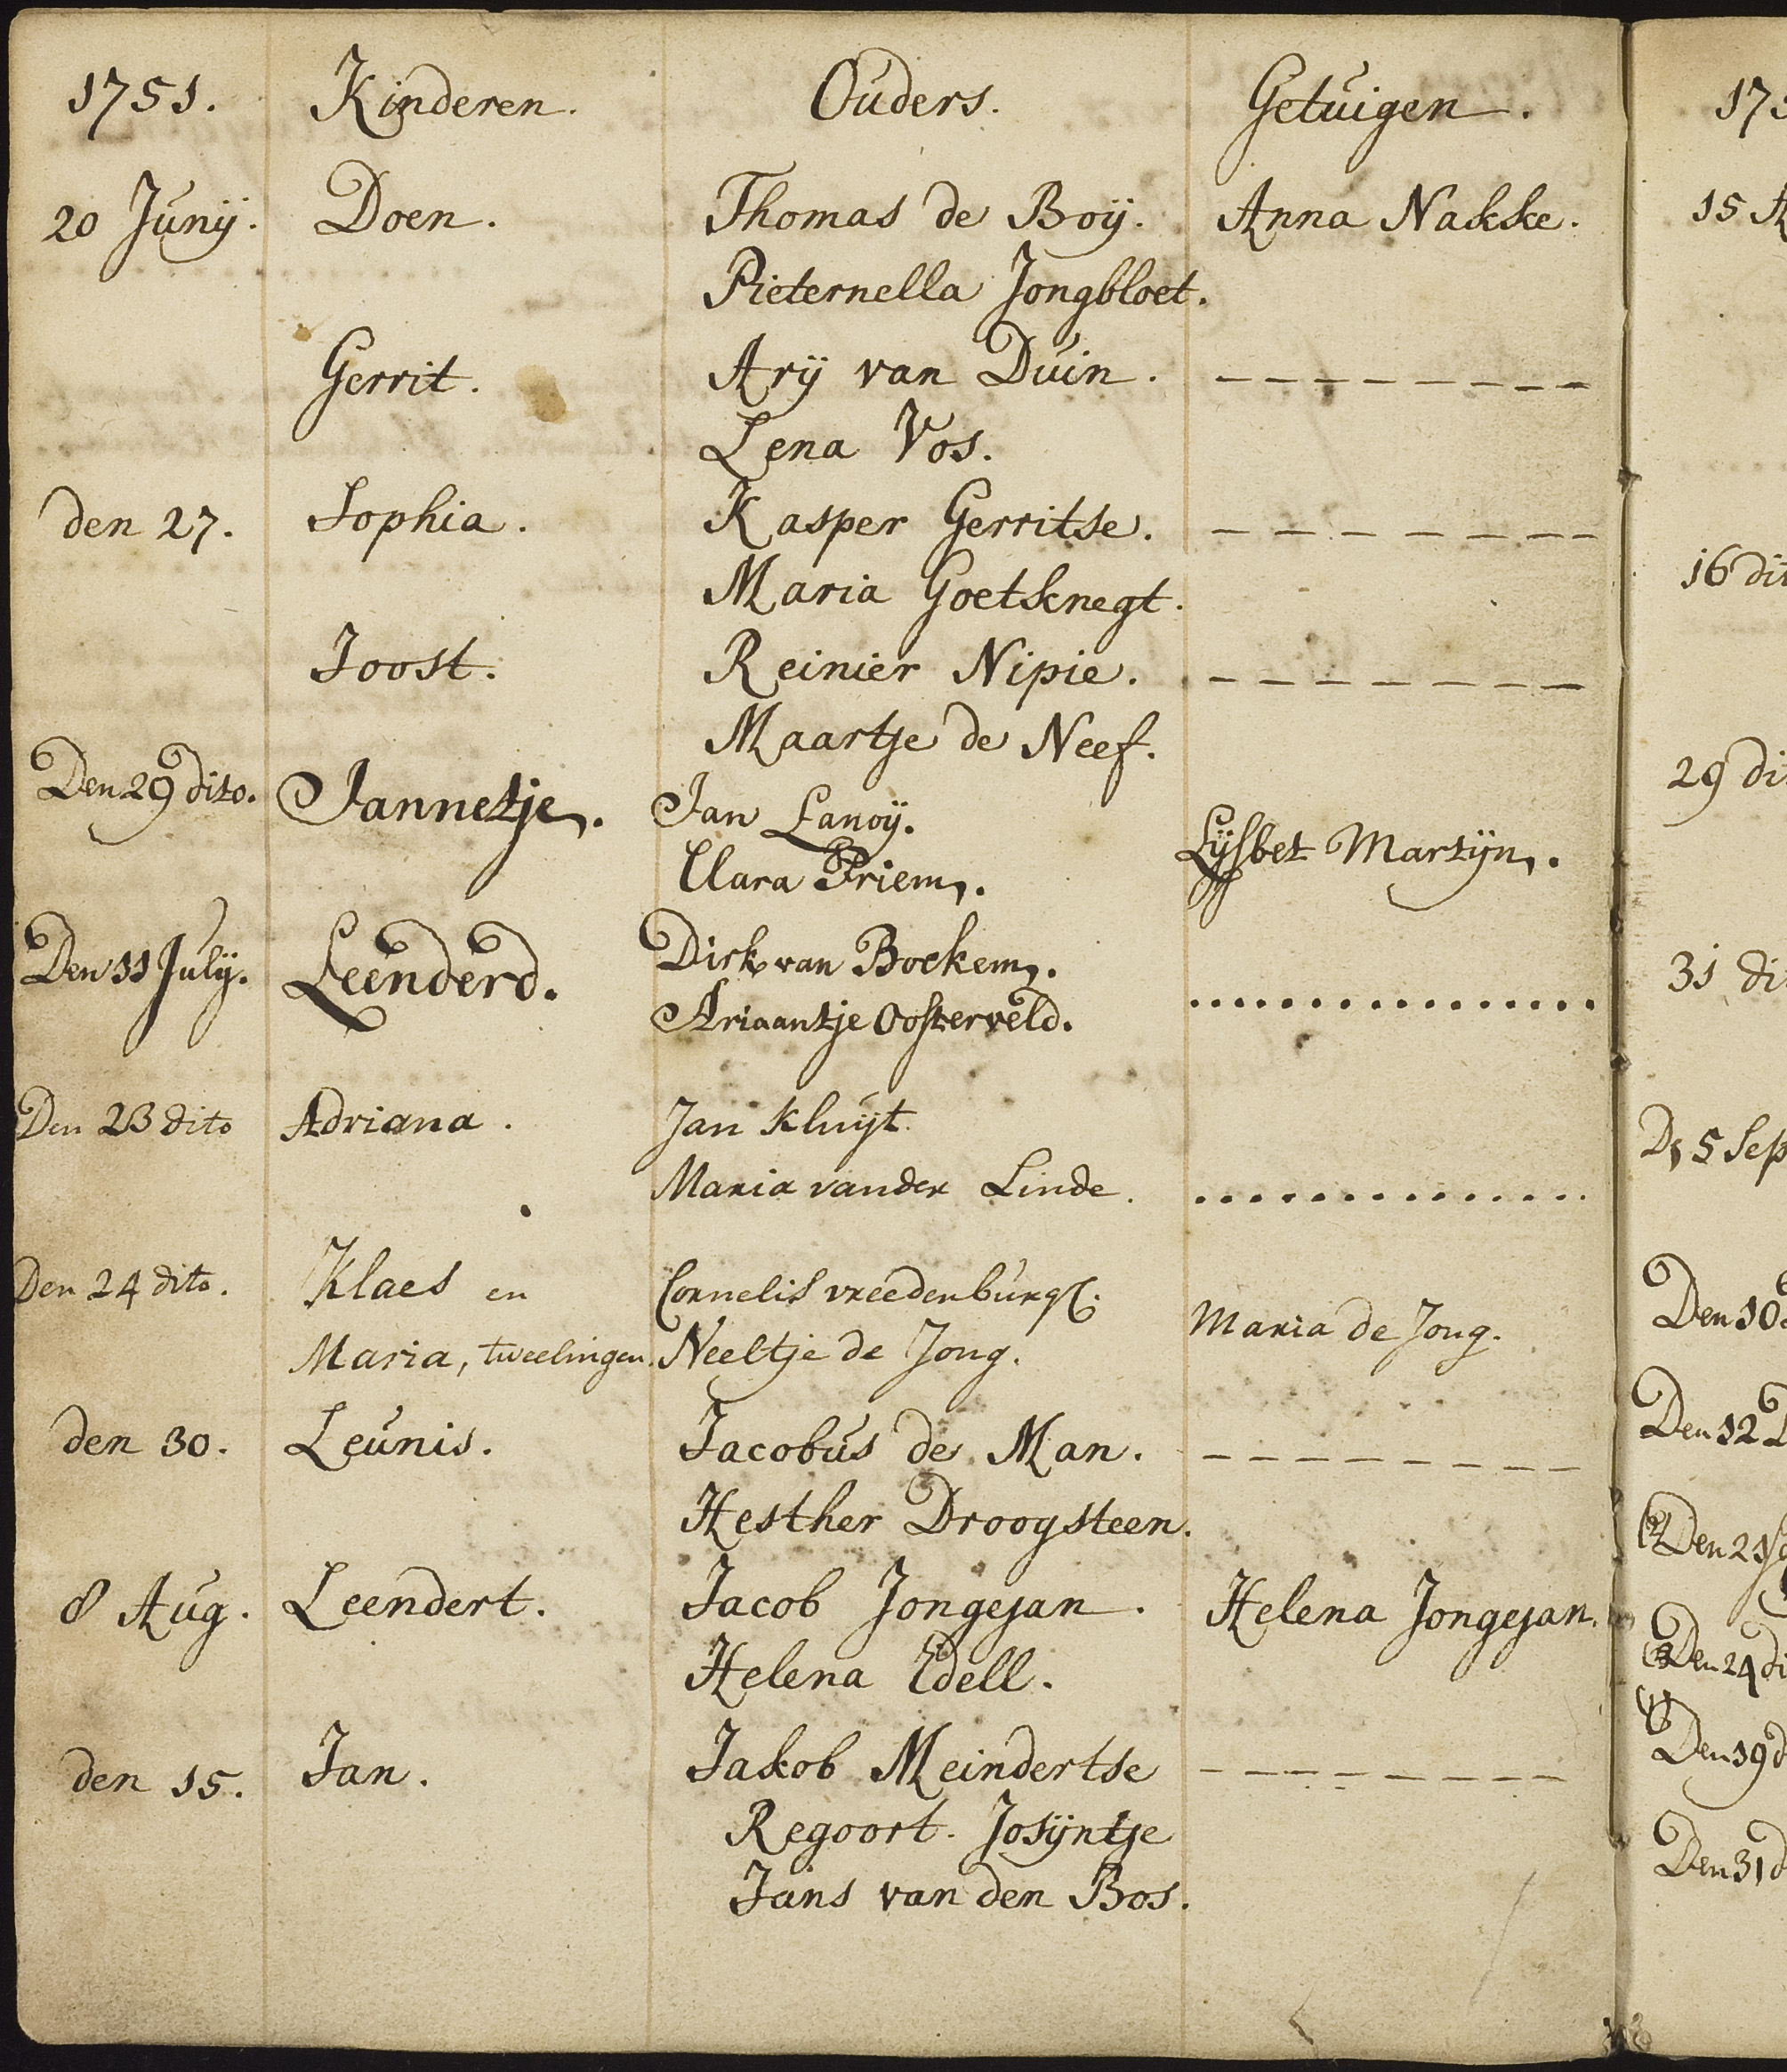 1751. Kinderen. Ouders. Getuigen.
20 Junij. Doen. Thomas de Boij. Anna Nakke.
Pieternella Jongbloet.
Gerrit. Arij van Duin. – – – – – – – –
Lena Vos.
den 27. Sophia. Kasper Gerritse. – – – – – – – –
Maria Goetknegt.
Joost. Reinier Nipie. – – – – – – – –
Maartje de Neef.
Den 29 dito. Jannetje. Jan Lanoij.
Clara Priem. Lijsbet Martijn.
Den 11 Julij. Leenderd. Dirk van Boekem.
Ariaantje Oosterveld. ................
Den 23 dito Adriana. Jan Kluijt.
Maria vander Linde. ..............
Den 24 dito. Klaes en Cornelis vreedenburg.
Maria, tweelingen. Neeltje de Jong. Maria de Jong.
den 30. Leunis. Jacobus de Man. – – – – – – – –
Hesther Droogsteen.
8 Aug. Leendert. Jacob Jongejan. Helena Jongejan.
Helena Edell.
den 15. Jan. Jakob Meindertse – – – – – – – –
Regoort. Josijntje
Jans van den Bos.
175
15 A
16 dit
29 di
31 di
5 Sep
Den 10
Den 12
Den 21
Den 24 di
Den 19 d
Den 31 d